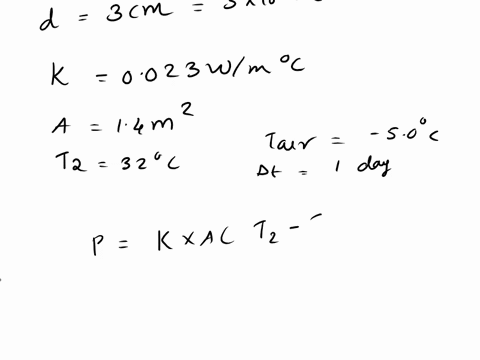 d = 3cm = 3x10
K = 0.023 W/m °C
A = 1.4 m²
T2 = 32°C
Tair = -5.0°C
Δt = 1 day
P = K x A ( T2 -